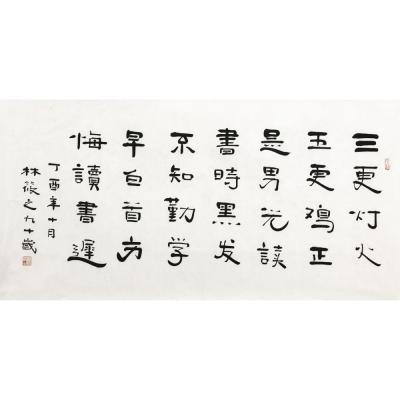 三更灯火
五更鸡正
是男児读
書時黑发
不知勤学
早白首方
悔讀書遲
丁酉年十月
林筱之九十歲